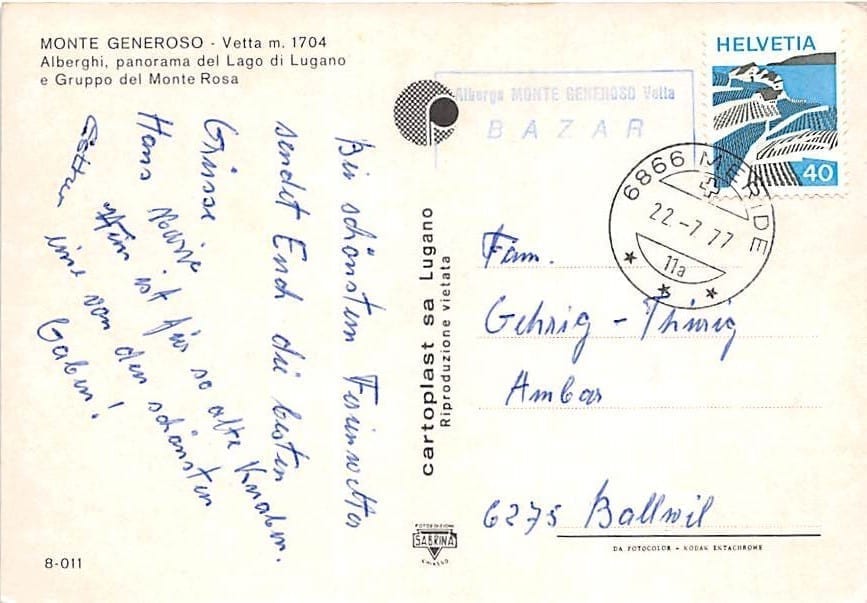 MONTE GENEROSO - Vetta m. 1704
Alberghi, panorama del Lago di Lugano
e Gruppo del Monte Rosa
Albergo MONTE GENEROSO Vetta
BAZAR
HELVETIA
40
6866 MERIDE
22-7.77
11a
Bei schönstem Ferienwetter
sendet Euch die besten
Grüsse
Hans
ist für so alte Knaben.
eine von den schönsten
Gaben!
cartoplast sa Lugano
Riproduzione vietata
Fam.
Gehrig - Thürig
Ambar
6275 Ballwil
FOTOEDIZIONI
SABRINA
CHIASSO
DA FOTOCOLOR - KODAK EKTACHROME
8-011